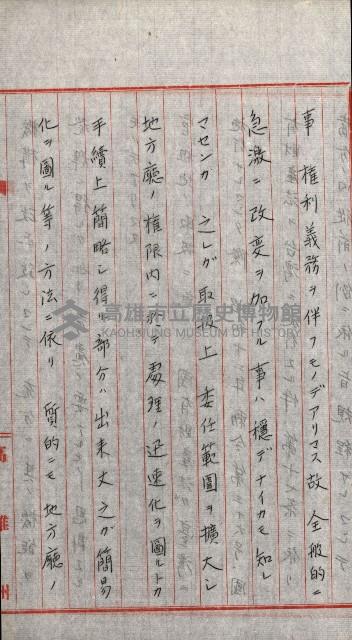 事 権利義務ヲ伴フモノデアリマス故 全般的ニ
急激ニ改変ヲ加フル事ハ穏デナイカモ知レ
マセンガ 之レガ取扱上 委任範圍ヲ擴大シ
地方廳ノ権限内ニ於テ處理ノ迅速化ヲ圖ルトカ
手續上簡略シ得ル部分ハ出来丈之ガ簡易
化ヲ圖ル等ノ方法ニ依リ 質的ニモ地方廳ノ
高雄市立歷史博物館
KAOHSIUNG MUSEUM OF HISTORY
高雄州